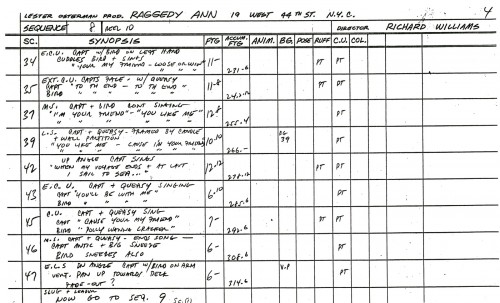 4
LESTER OSTERMAN PROD. RAGGEDY ANN 19 WEST 44TH ST. N.Y.C.
SEQUENCE 8 REEL 10 DIRECTOR RICHARD WILLIAMS
SC. SYNOPSIS FTG ACCUM. FTG ANIM. BG. POSE RUFF C.U. COL.
34 E.C.U. CAPT W/BIRD ON LEFT HAND
CUDDLES BIRD + SINGS 11-
"YOUR MY FRIEND - LOSE OR WIN" 231.6 PT PT
35 EXT. C.U. CAPTS FACE - W/QUEASY
CAPT "TO TH END - TO TH END" 11-8 PT PT
BIRD " " " " 242.14
37 MS. CAPT + BIRD CONT SINGING
"I'M YOUR FRIEND" - "YOU LIKE ME" 12-8 PT
" " " " 255.4
39 L.S. CAPT + QUEASY - FRAMED BY CANDLE
+ WALL PARTITION 10-10 BG 39 PT
"YOU LIKE ME - CAUSE I'M YOUR FRIEND" 266.-
42 UP ANGLE CAPT SINGS
"WHEN MY VOYAGE ENDS + AT LAST 12-12 PT PT
I SAIL TO SEA..." 278.12
43 E.C.U. CAPT + QUEASY SINGING
CAPT "YOU'LL BE WITH ME" 6-10 PT
BIRD " " " 285.6
45 C.U. CAPT + QUEASY SING
CAPT "CAUSE YOUR MY FRIEND" 7- PT PT
BIRD "POLLY WANNA CRACKER" 292.6
46 M.S. CAPT + QUEASY - ENDS SONG -
CAPT ANTIC + BIG SNEEZE 6- PT
BIRD SNEEZES ALSO 308.6
47 E.L.S. DN ANGLE CAPT W/BIRD ON ARM
VERT. PAN UP TOWARDS DECK 6- V.P PT
FADE-OUT? 314.6
SLUG + LEADER
NOW GO TO SEQ. 9 SC. (1)